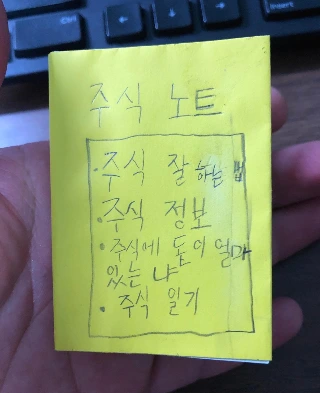 Ctrl
Insert
주식 노트
·주식 잘하는 법
·주식 정보
·주식에 돈이 얼마
있는 냐
·주식 일기